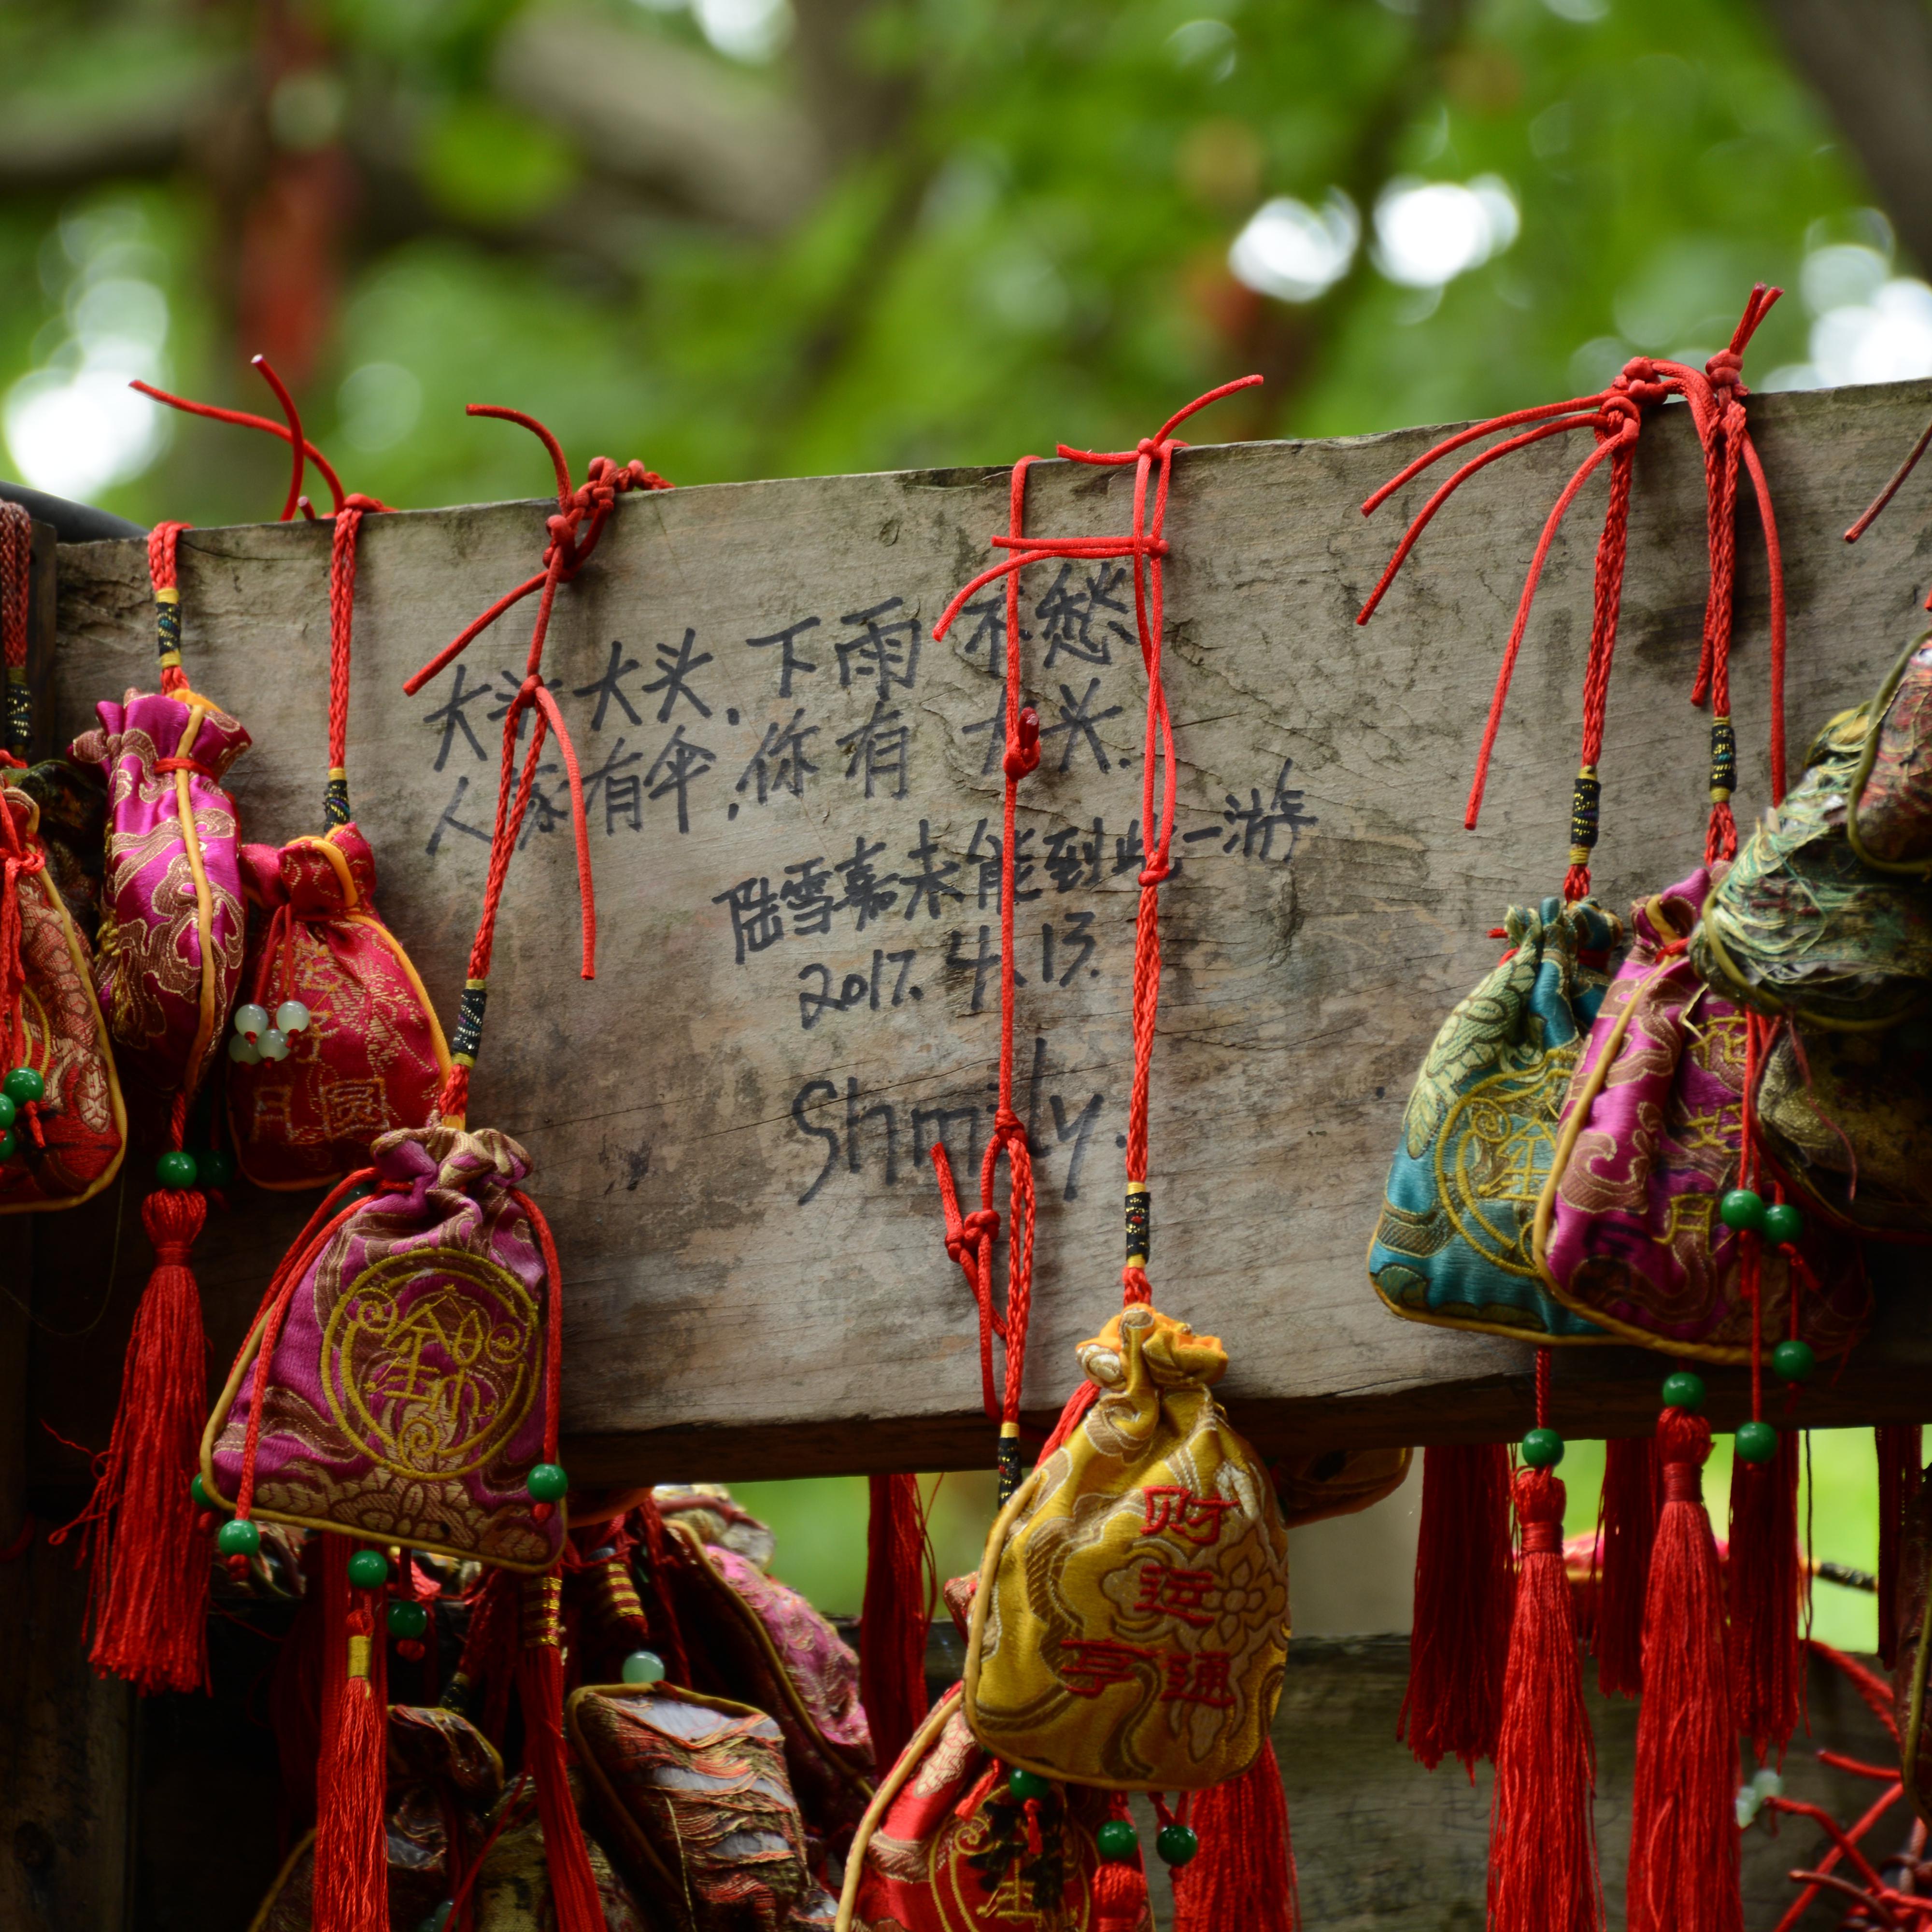 大头大头,下雨不愁
人家有伞,你有大头.
陆雪嘉未能到此一游
2017.4.13.
Shmily.
月圆
花好
月
财运
亨通